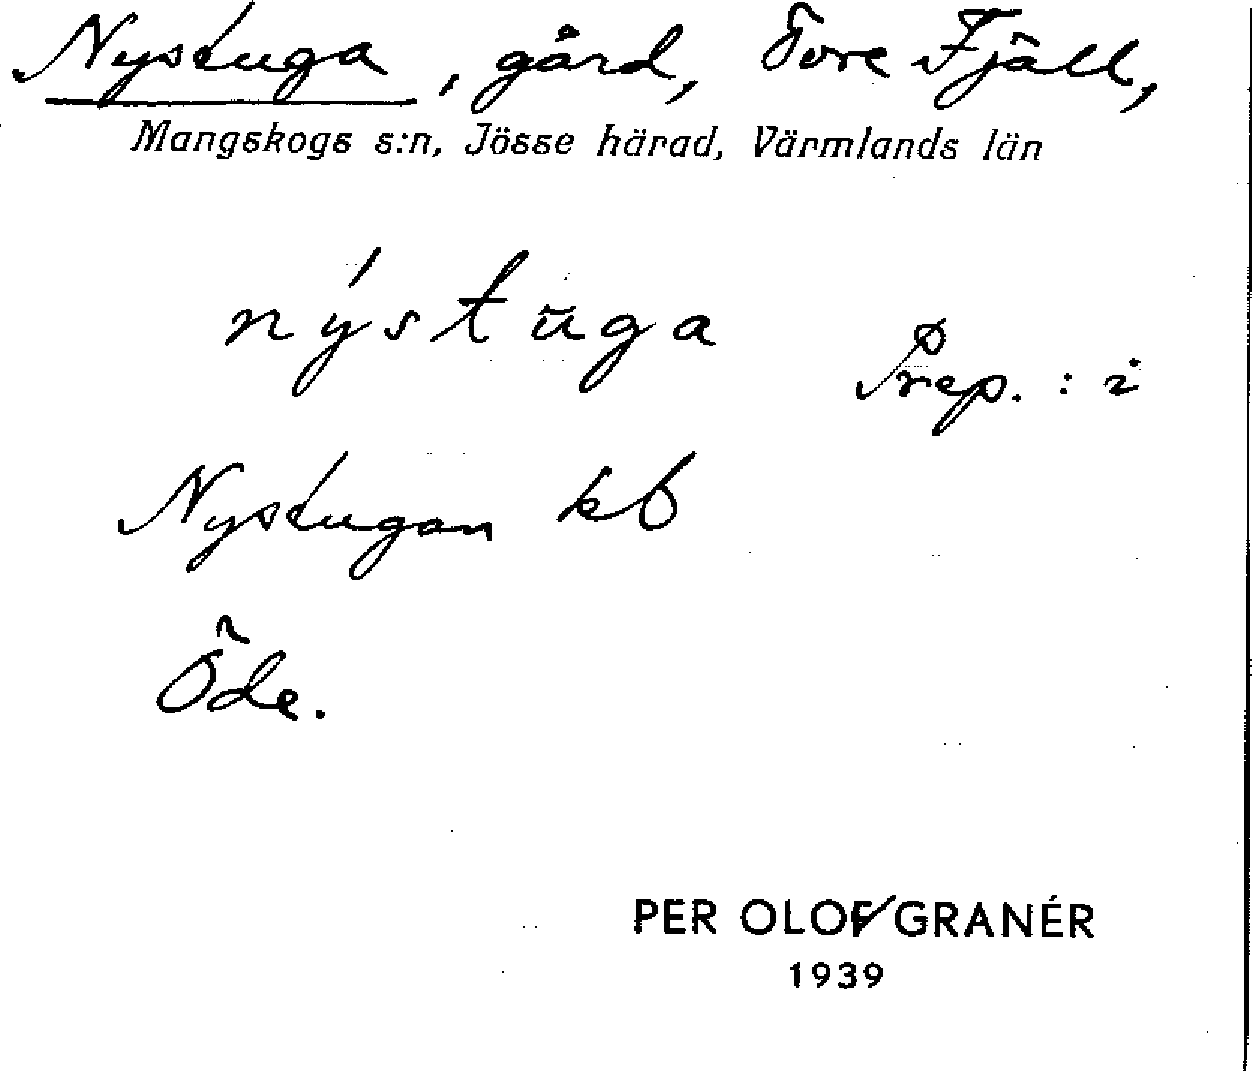 Nystuga, gård, Tore Fjäll,
Mangskogs s:n, Jösse härad, Värmlands län
nýstūga
Prep. : i
Nystugan kb
Öde.
PER OLOF GRANÉR
1939